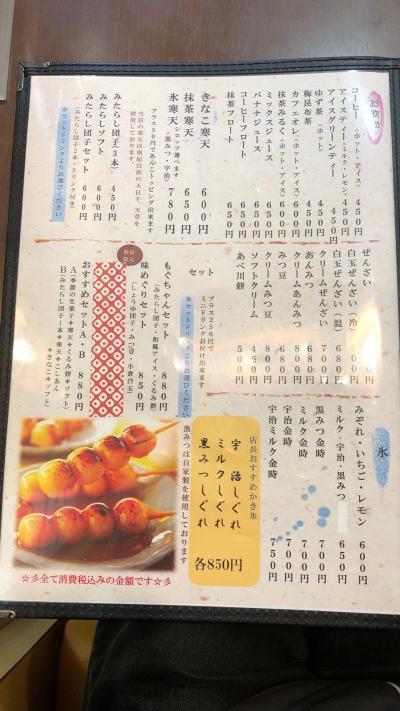 お飲物
コーヒー（ホット・アイス） 450円
アイスティー（ミルク・レモン） 450円
アイスグリーンティー 450円
ゆず茶（ホット） 450円
梅昆布茶 450円
カフェオレ（ホット・アイス） 600円
抹茶みるく（ホット・アイス） 600円
ミックスジュース 650円
バナナジュース 650円
コーヒーフロート 650円
抹茶フロート 650円
きなこ寒天 600円
抹茶寒天 650円
シロップ選べます
氷寒天（黒みつ・宇治） 780円
プラス50円であんこトッピング出来ます
当店の寒天は東紀白浜の天日干、天草を
使用しております。
みたらし団子（3本） 450円
みたらしソフト 600円
みたらし団子セット 600円
（みたらし団子2本・ドリンク付き）
※セットドリンクよりお選びください
ぜんざい
白玉ぜんざい（冷）
白玉ぜんざい（温） 680円
クリームぜんざい
あんみつ
クリームあんみつ
みつ豆
クリームみつ豆
ソフトクリーム
あべ川餅 500円
セット
プラス250円で
ミニドリンクお付け出来ます
※セットドリンクよりお選びください
もぐちゃんセット 880円
（みたらし団子・和風アイス・くるみ餅）
味めぐりセット 850円
（しょうゆ団子・みつ豆・小倉白玉）
数量
限定
おすすめセットA・B 880円
A（季節の生菓子+寒天+くるみ餅+ソフト）
B（みたらし団子1本+寒天+こしあん
+きなこ+ソフト）
氷
みぞれ・いちご・レモン 600円
ミルク・宇治・黒みつ 650円
黒みつ金時 700円
宇治金時 700円
ミルク金時 700円
宇治ミルク金時 750円
店長おすすめかき氷
宇治しぐれ
ミルクしぐれ
黒みつしぐれ
各850円
黒みつは自家製を使用しております
☆彡全て消費税込みの金額です☆彡